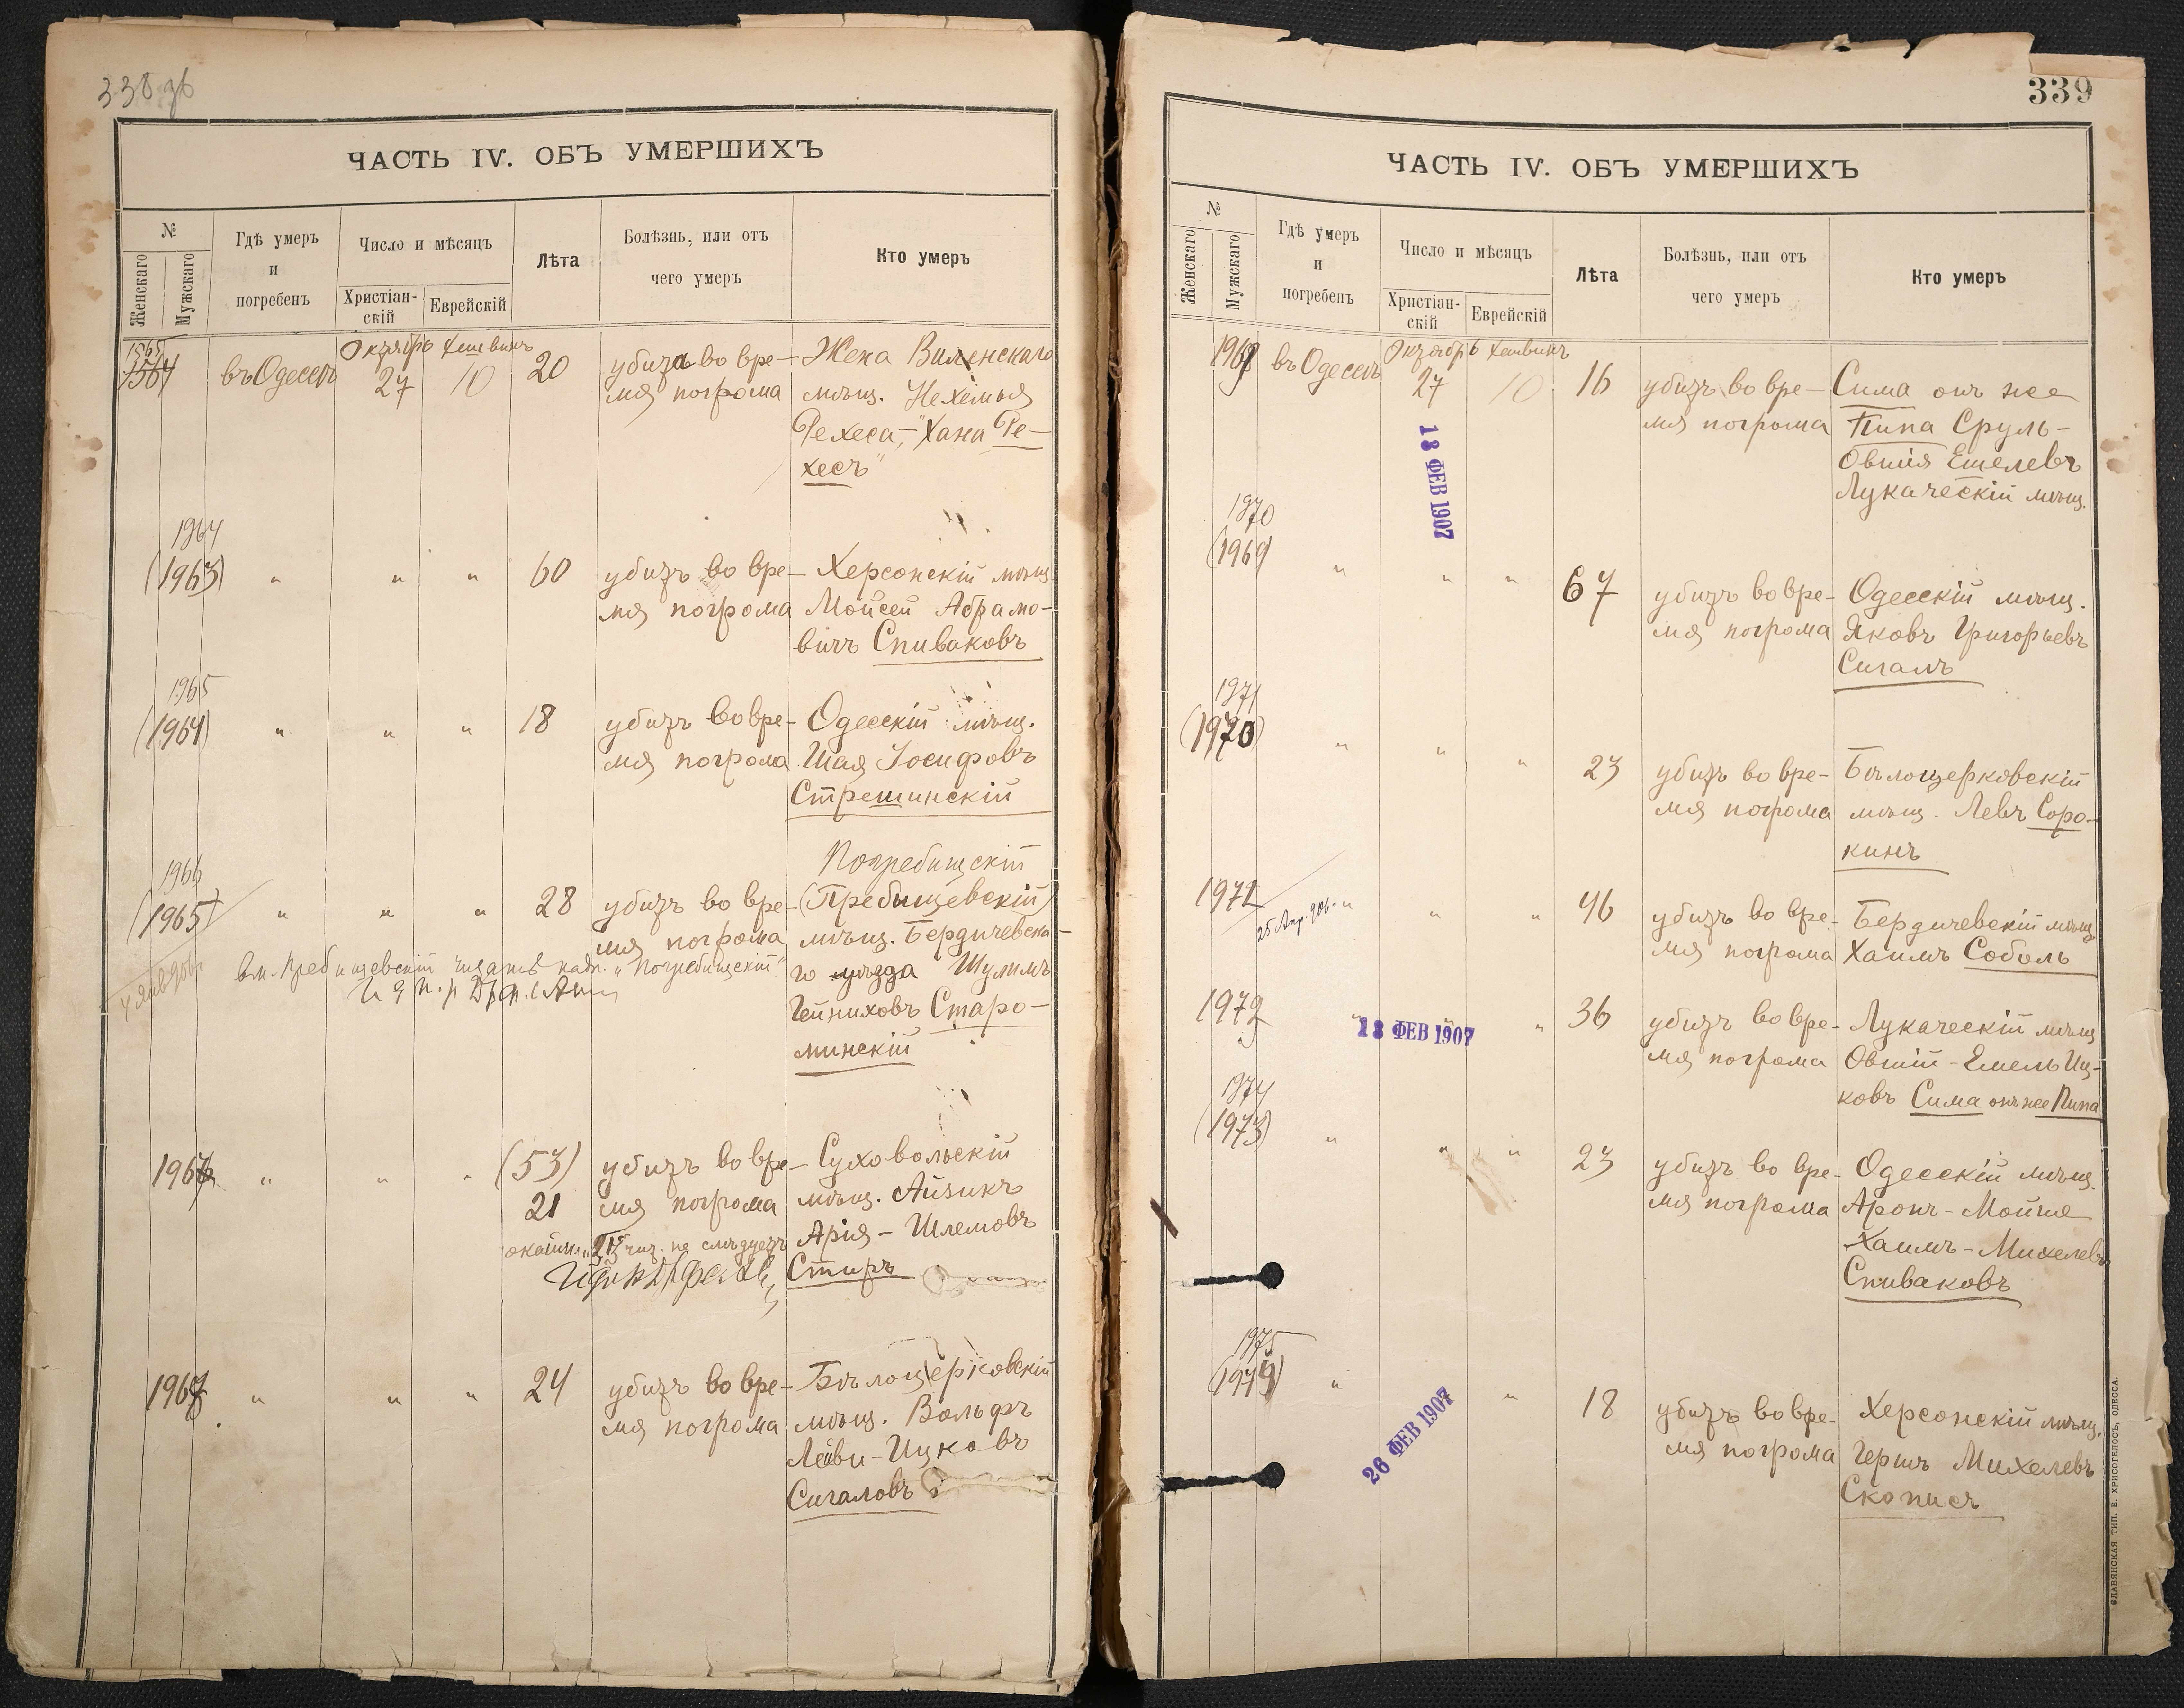 338 об
ЧАСТЬ IV. ОБЪ УМЕРШИХЪ
№
Женскаго
Мужскаго
Гдѣ умеръ
и
погребенъ
Число и мѣсяцъ
Христіан-
скій
Еврейскій
Лѣта
Болѣзнь, или отъ
чего умеръ
Кто умеръ
Октябрь Хешвинъ
въ Одессѣ
27
10
20
убита во вре-
мя погрома
Жена Виленскаго
мѣщ. Нехемья
Рехеса, "Хана Ре-
хесъ"
1964
(1963)
" " "
60
убитъ во вре-
мя погрома
Херсонскій мѣщ.
Мойсей Абрамо-
вичъ Спиваковъ
1965
(1964)
" " "
18
убитъ во вре-
мя погрома
Одесскій мѣщ.
Шая Іосифовъ
Стрешинскій
1966
(1965)
" " "
28
убитъ во вре-
мя погрома
Погребищскій
(Пребищевскій)
мѣщ. Бердичевска-
го уѣзда Шулимъ
Гейниховъ Старо-
минскій
вм. Пребищевскій читать надп. "Погребищскій"
1967
" " "
(53)
21
убитъ во вре-
мя погрома
Суховольскій
мѣщ. Айзикъ
Арія-Шлемовъ
Стиръ
1968
" " "
24
убитъ во вре-
мя погрома
Бѣлоцерковскій
мѣщ. Вольфъ
Лейви-Ицковъ
Сигаловъ
339
ЧАСТЬ IV. ОБЪ УМЕРШИХЪ
№
Женскаго
Мужскаго
Гдѣ умеръ
и
погребенъ
Число и мѣсяцъ
Христіан-
скій
Еврейскій
Лѣта
Болѣзнь, или отъ
чего умеръ
Кто умеръ
Октябрь Хешвинъ
1969
въ Одессѣ
27
10
16
убитъ во вре-
мя погрома
Сима онъ же
Пипа Сруль-
Овшія Емелевъ
Лукаческій мѣщ.
18 ФЕВ 1907
1970
(1969)
" " "
67
убитъ во вре-
мя погрома
Одесскій мѣщ.
Яковъ Григорьевъ
Сигалъ
1971
(1970)
" " "
23
убитъ во вре-
мя погрома
Бѣлоцерковскій
мѣщ. Левъ Соро-
кинъ
1972
25 Апр. 906.
" " "
46
убитъ во вре-
мя погрома
Бердичевскій мѣщ.
Хаимъ Соболь
1973
18 ФЕВ 1907
"
36
убитъ во вре-
мя погрома
Лукаческій мѣщ.
Овшій-Емель Иц-
ковъ Сима онъ же Пипа
1974
(1973)
" " "
23
убитъ во вре-
мя погрома
Одесскій мѣщ.
Аронъ-Мойше
Хаимъ-Михелевъ
Спиваковъ
1975
(1974)
" "
26 ФЕВ 1907
18
убитъ во вре-
мя погрома
Херсонскій мѣщ.
Гершъ Михелевъ
Скописъ
СЛАВЯНСКАЯ ТИП. Е. ХРИСОГЕЛОСЪ, ОДЕССА.